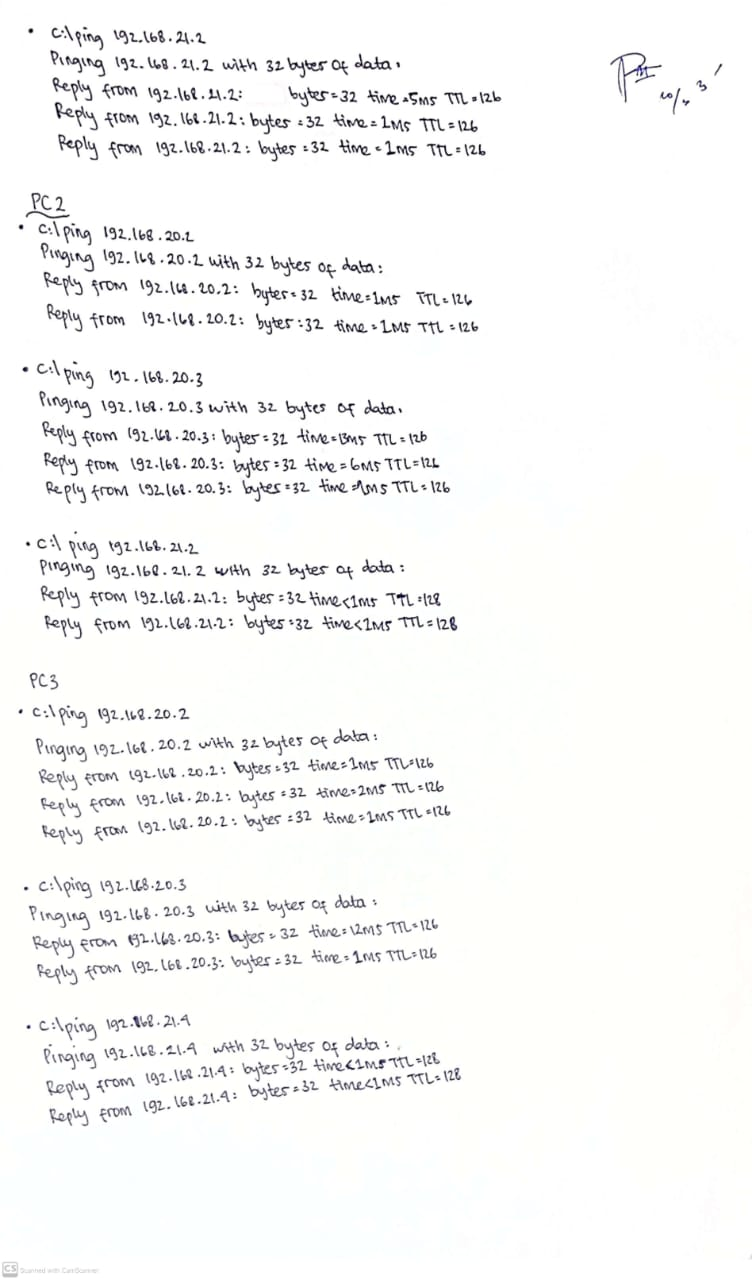 • c:\ping 192.168.21.2
Pinging 192.168.21.2 with 32 bytes of data.
Reply from 192.168.21.2: bytes=32 time=5ms TTL=126
Reply from 192.168.21.2: bytes=32 time=1ms TTL=126
Reply from 192.168.21.2: bytes=32 time=1ms TTL=126
PC2
• c:\ping 192.168.20.2
Pinging 192.168.20.2 with 32 bytes of data:
Reply from 192.168.20.2: bytes=32 time=1ms TTL=126
Reply from 192.168.20.2: bytes=32 time=1ms TTL=126
• c:\ping 192.168.20.3
Pinging 192.168.20.3 with 32 bytes of data.
Reply from 192.168.20.3: bytes=32 time=13ms TTL=126
Reply from 192.168.20.3: bytes=32 time=6ms TTL=126
Reply from 192.168.20.3: bytes=32 time=1ms TTL=126
• c:\ ping 192.168.21.2
Pinging 192.168.21.2 with 32 bytes of data:
Reply from 192.168.21.2: bytes=32 time<1ms TTL=128
Reply from 192.168.21.2: bytes=32 time<1ms TTL=128
PC3
• c:\ping 192.168.20.2
Pinging 192.168.20.2 with 32 bytes of data:
Reply from 192.168.20.2: bytes=32 time=1ms TTL=126
Reply from 192.168.20.2: bytes=32 time=2ms TTL=126
Reply from 192.168.20.2: bytes=32 time=1ms TTL=126
• c:\ping 192.168.20.3
Pinging 192.168.20.3 with 32 bytes of data:
Reply from 192.168.20.3: bytes=32 time=12ms TTL=126
Reply from 192.168.20.3: bytes=32 time=1ms TTL=126
• c:\ping 192.168.21.4
Pinging 192.168.21.4 with 32 bytes of data:
Reply from 192.168.21.4: bytes=32 time<1ms TTL=128
Reply from 192.168.21.4: bytes=32 time<1ms TTL=128
CS Scanned with CamScanner